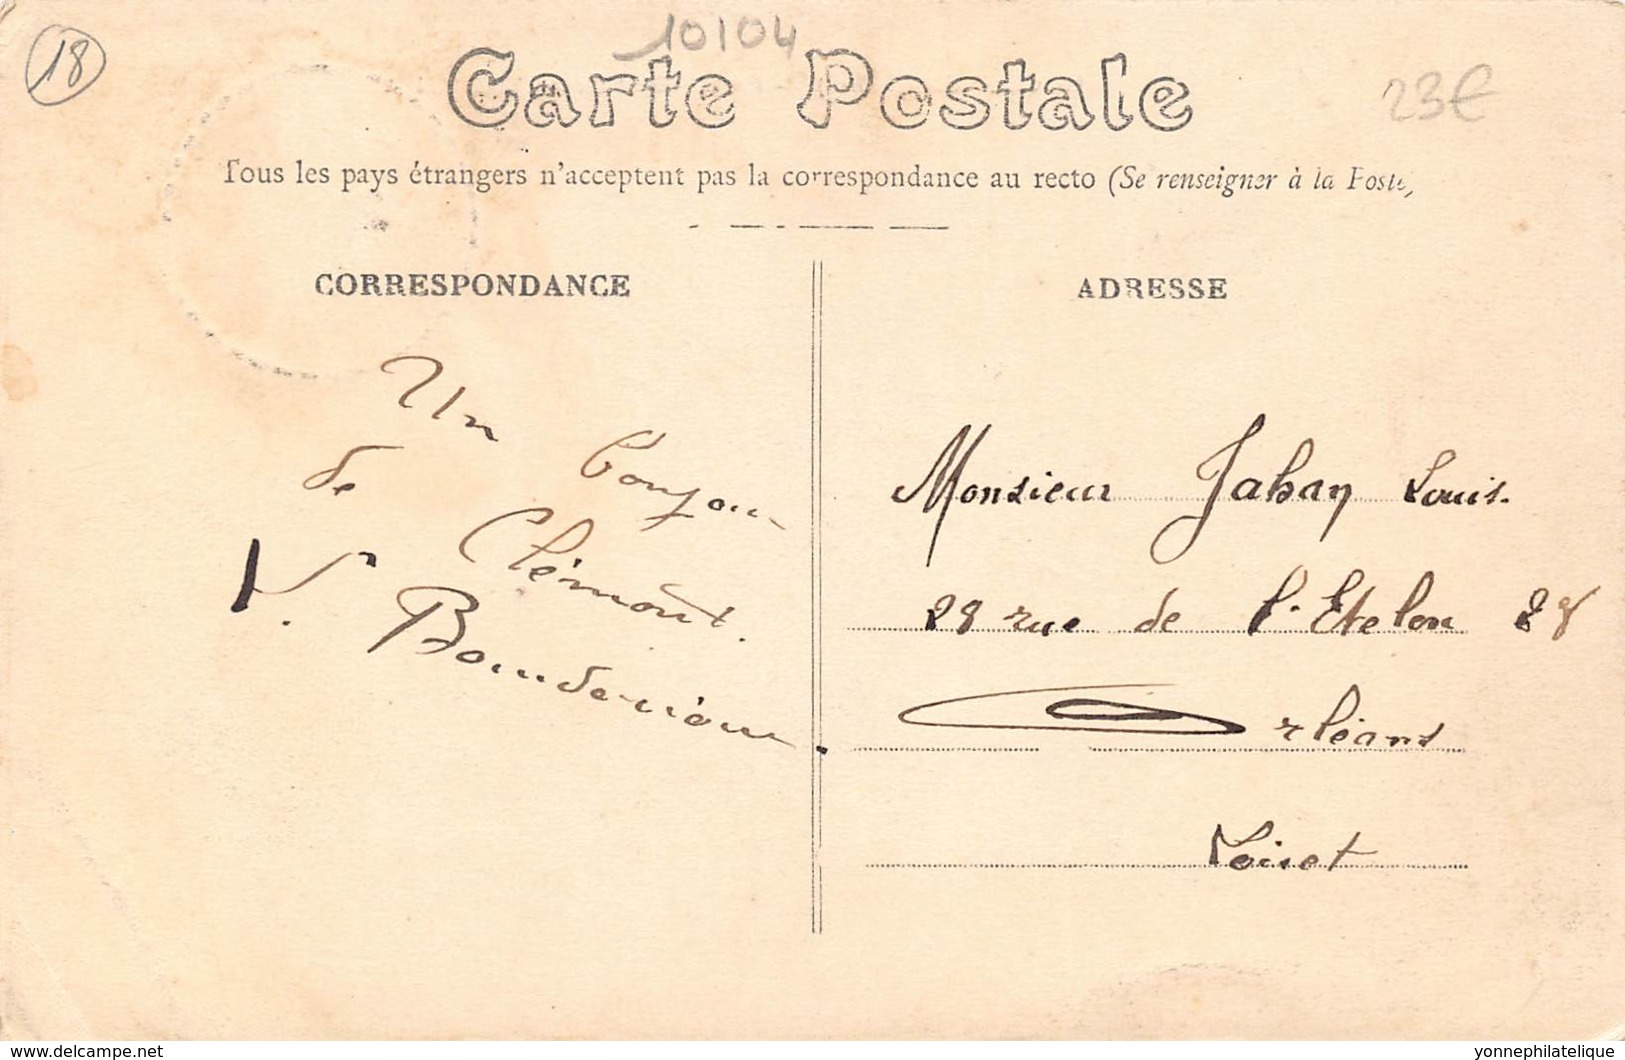 18
10104
Carte Postale
23€
Tous les pays étrangers n'acceptent pas la correspondance au recto (Se renseigner à la Poste)
CORRESPONDANCE
ADRESSE
Un bonjour
de Clémont.
V.
Monsieur Jahan Louis.
28 rue de l'Etelon 28
Orléans
Loiret
delcampe.net
yonnephilatelique